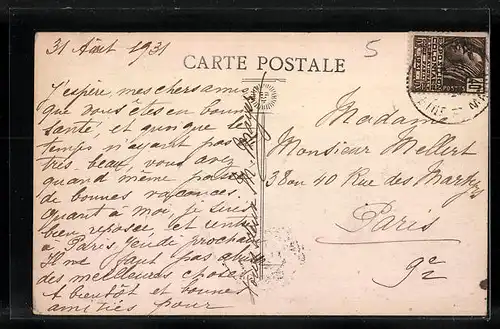 31 Août 1931
5
CARTE POSTALE
J'espère, mes chers amis,
que vous êtes en bonne
santé, et quoique le
temps n'ayant pas
très beau, vous avez
quand même passé
de bonnes vacances.
Quant à moi, je suis
bien reposée, et rentre
à Paris jeudi prochain
Il ne faut pas abuser
des meilleures choses
A bientôt et bonnes
amitiés pour
Madame
Monsieur Mellert
38 ou 40 Rue des
Paris
9e